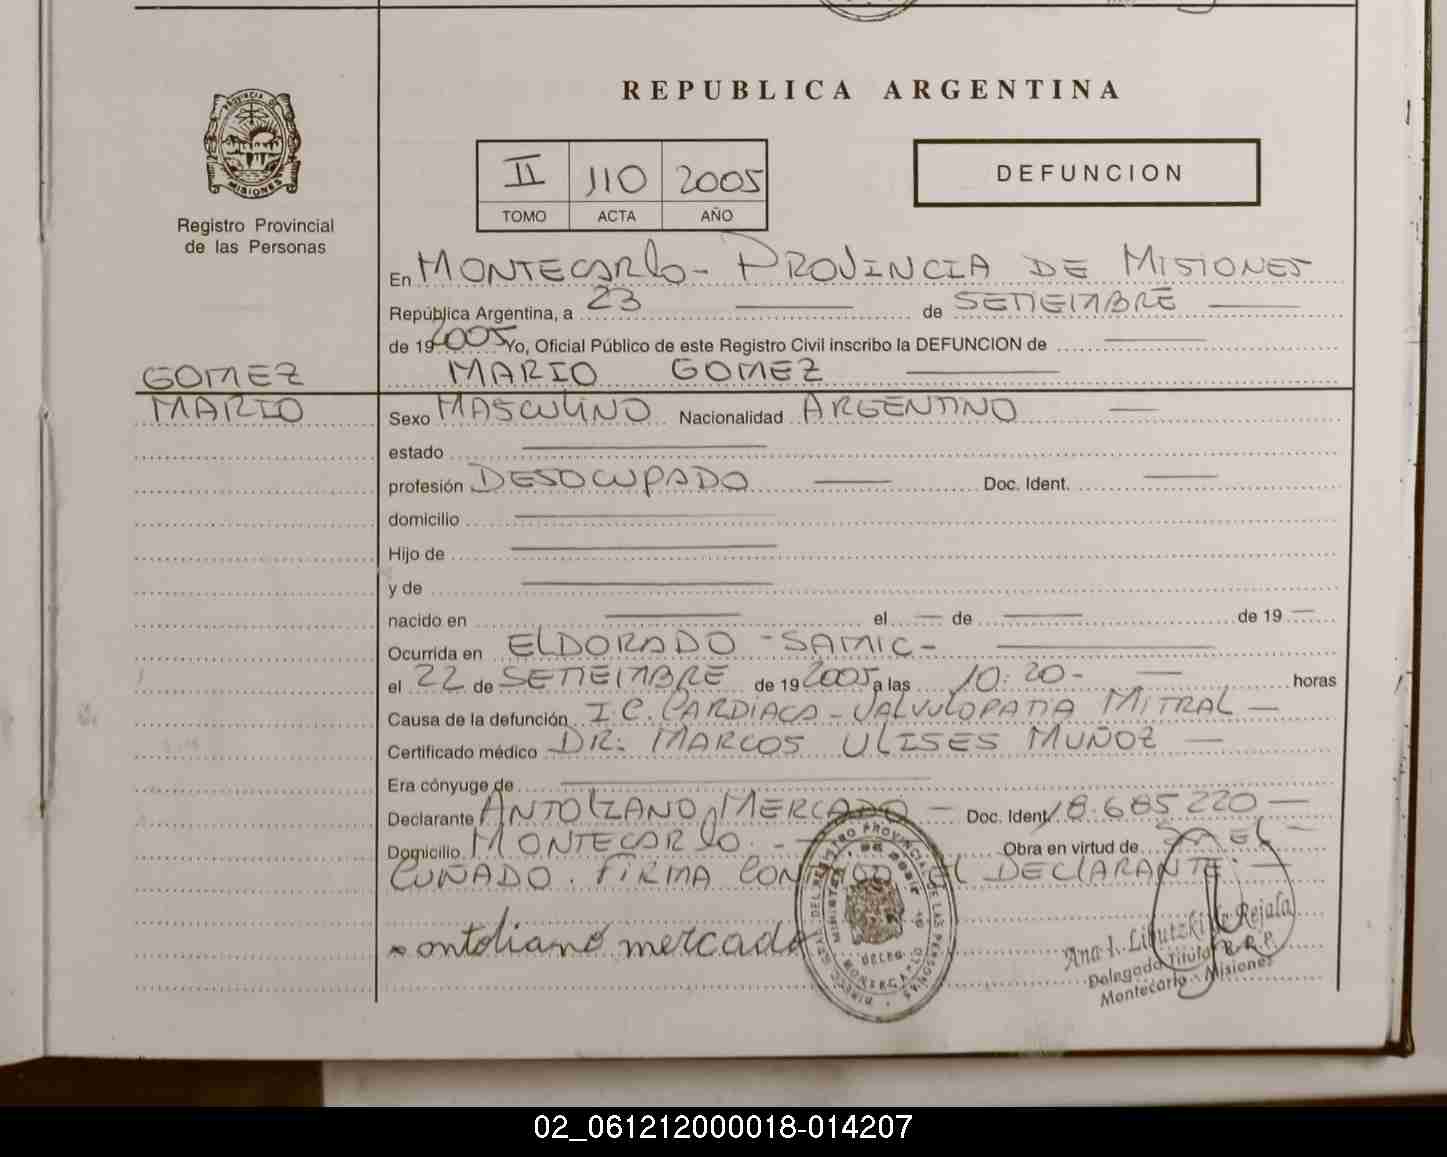 REPUBLICA ARGENTINA
PROVINCIA DE
MISIONES
Registro Provincial
de las Personas
II 110 2005
TOMO ACTA AÑO
DEFUNCION
En MONTECARLO - PROVINCIA DE MISIONES
República Argentina, a 23 de SETIEMBRE
de 19 2005 Yo, Oficial Público de este Registro Civil inscribo la DEFUNCION de
GOMEZ MARIO GOMEZ
MARIO Sexo MASCULINO Nacionalidad ARGENTINO
estado
profesión DESOCUPADO Doc. Ident.
domicilio
Hijo de
y de
nacido en el de de 19
Ocurrida en ELDORADO - SAMIC -
el 22 de SETIEMBRE de 19 2005 a las 10:20- horas
Causa de la defunción I.C. CARDIACA - VALVULOPATIA MITRAL -
Certificado médico DR: MARCOS ULISES MUÑOZ -
Era cónyuge de
Declarante ANTOLIANO MERCADO - Doc. Ident. 18.685220 -
Domicilio MONTECARLO. - Obra en virtud de
CUÑADO. FIRMA EL DECLARANTE. -
antoliano mercado
Ana I. de Rejala
Delegada Titular R.R.P.
Montecarlo - Misiones
02_061212000018-014207